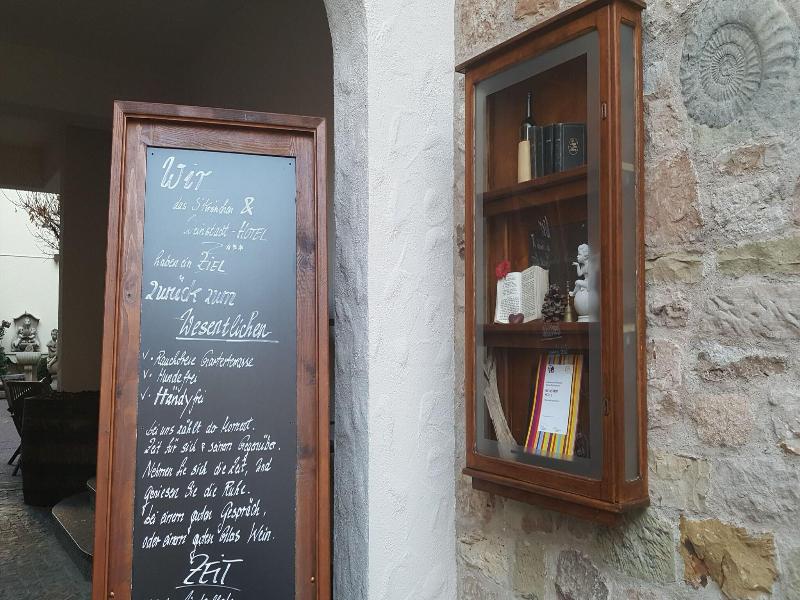 Wir
das Stübchen &
Weinstadt-HOTEL
***
haben ein ZIEL
zurück zum
Wesentlichen
√. Rauchfreie Gartenterrasse
√. Hundefrei
√. Handyfrei
bei uns zählt der Moment.
Zeit für sich & seinem Gegenüber.
Nehmen Sie sich die Zeit, und
geniesen Sie die Ruhe.
bei einem guten Gespräch,
oder einem guten Glas Wein.
ZEIT